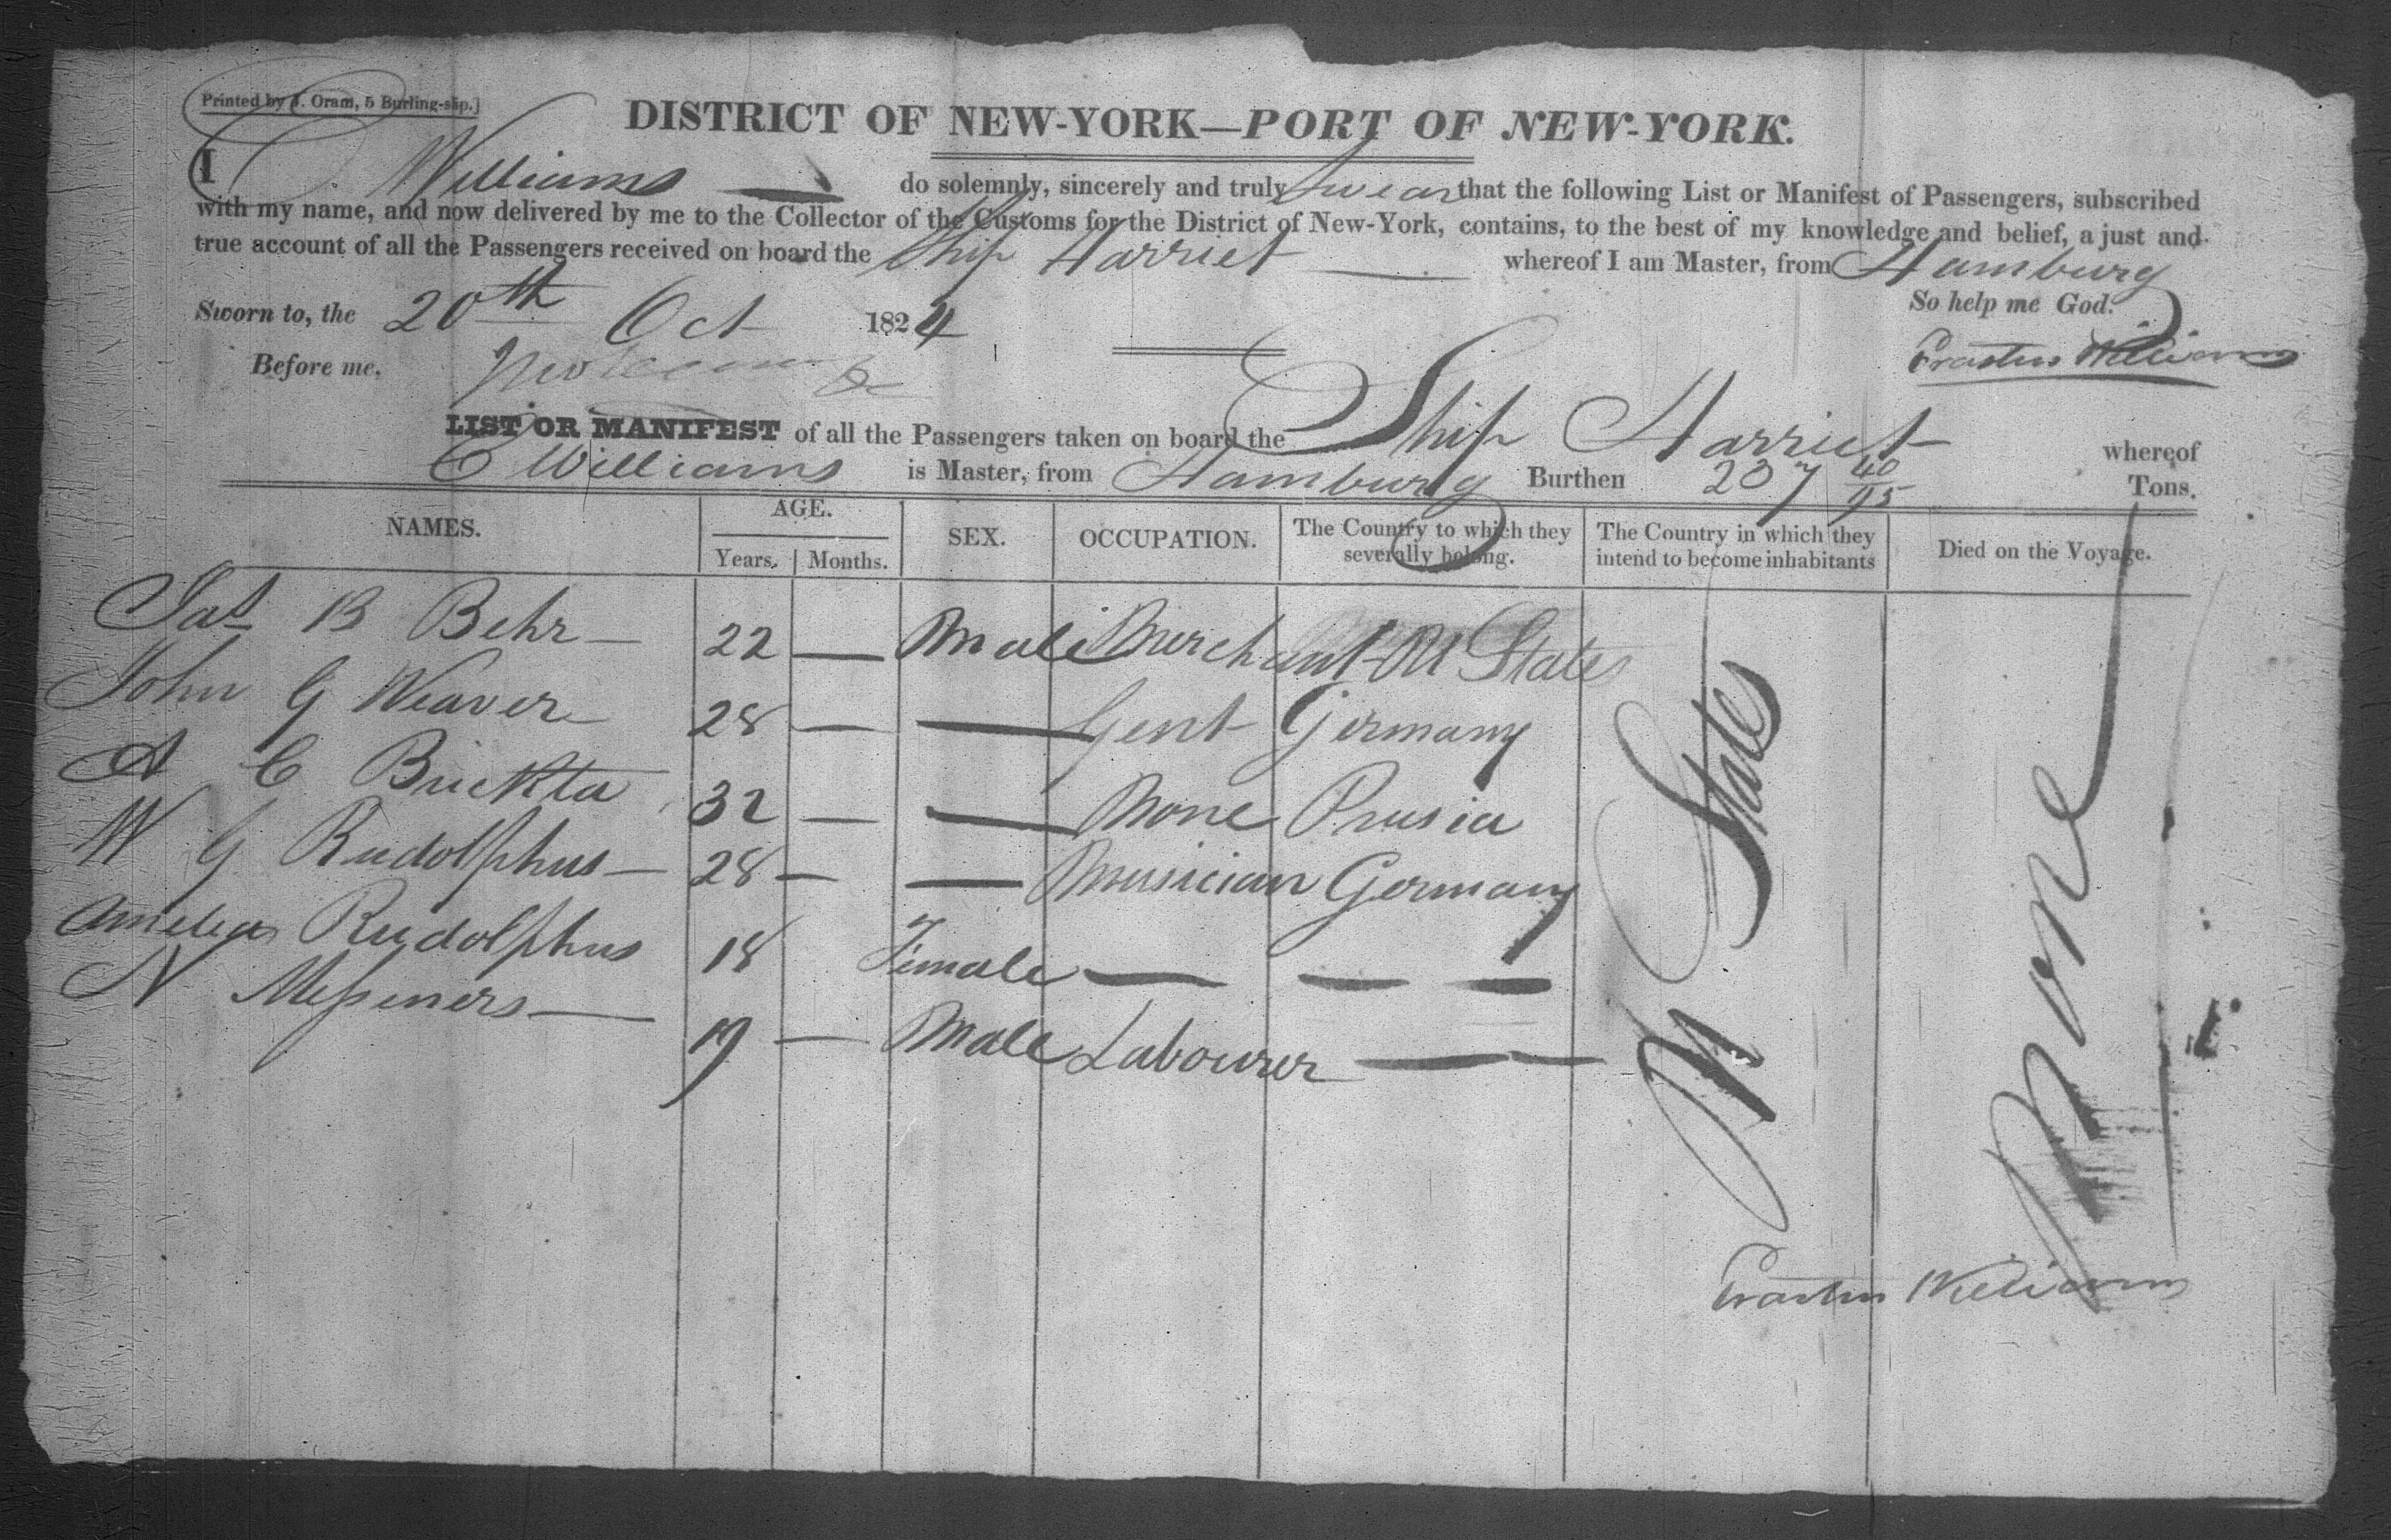 Printed by J. Oram, 5 Burling-slip.]
DISTRICT OF NEW-YORK—PORT OF NEW-YORK.
I E. Williams — do solemnly, sincerely and truly swear that the following List or Manifest of Passengers, subscribed
with my name, and now delivered by me to the Collector of the Customs for the District of New-York, contains, to the best of my knowledge and belief, a just and
true account of all the Passengers received on board the Ship Harriet — whereof I am Master, from Hamburg
Sworn to, the 20th Oct 1824 So help me God.
Before me, Erastus Williams
LIST OR MANIFEST of all the Passengers taken on board the Ship Harriet whereof
E Williams is Master, from Hamburg Burthen 237 40/95 Tons.
NAMES. AGE. Years. Months. SEX. OCCUPATION. The Country to which they severally belong. The Country in which they intend to become inhabitants Died on the Voyage.
B Behr — 22 — Male Merchant U States
John G Weaver 28 — — Gent Germany
A C 32 — — None Prusia
W G Rudolphus — 28 — — Musician Germany
Amelia Rudolphus 18 Female — — —
N Messeners — 19 — Male Labourer — —
U States
None
Erastus Williams